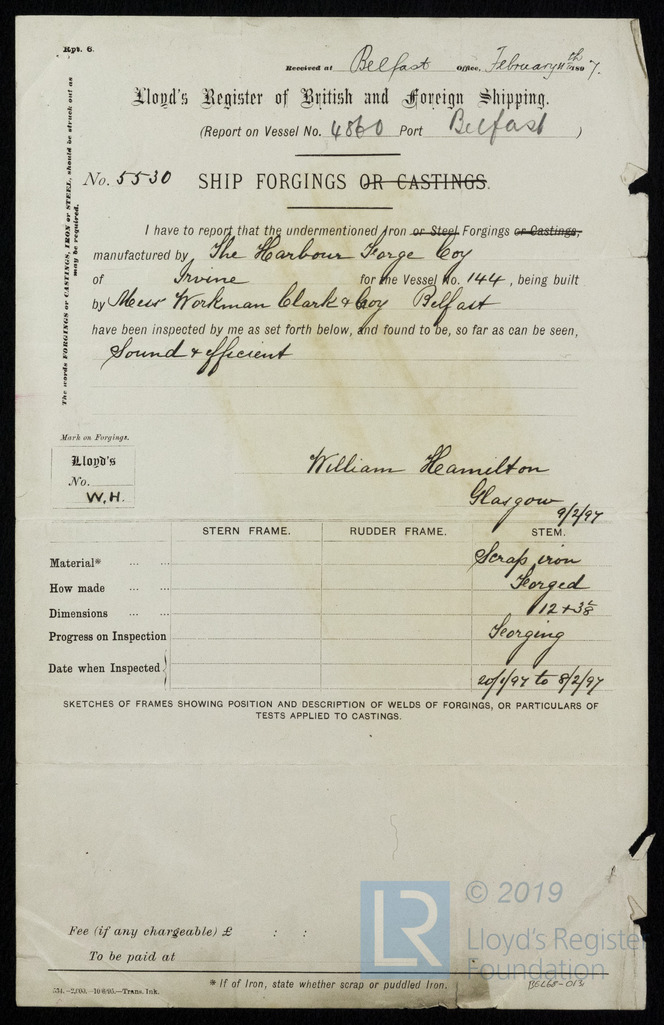 Rpt. 6.
Received at Belfast Office, February 11th 1897.
Lloyd's Register of British and Foreign Shipping.
(Report on Vessel No. 4860 Port Belfast )
No. 5530 SHIP FORGINGS OR CASTINGS.
The words FORGINGS or CASTINGS, IRON or STEEL, should be struck out as
may be required.
I have to report that the undermentioned Iron or Steel Forgings or Castings,
manufactured by The Harbour Forge Coy
of Irvine for the Vessel No. 144, being built
by Messrs Workman Clark & Coy Belfast
have been inspected by me as set forth below, and found to be, so far as can be seen,
Sound & efficient
Mark on Forgings.
Lloyd's
No.
W.H.
William Hamilton
Glasgow
9/2/97
STERN FRAME. RUDDER FRAME. STEM.
Material* ... ... Scrap iron
How made ... ... Forged
Dimensions ... ... 12 +
Progress on Inspection Forging
Date when Inspected 20/1/97 to 8/2/97
SKETCHES OF FRAMES SHOWING POSITION AND DESCRIPTION OF WELDS OF FORGINGS, OR PARTICULARS OF
TESTS APPLIED TO CASTINGS.
Fee (if any chargeable) £ : :
To be paid at
* If of Iron, state whether scrap or puddled Iron.
Trans. Ink.
LR
© 2019
Lloyd's Register
Foundation
BEL68-013